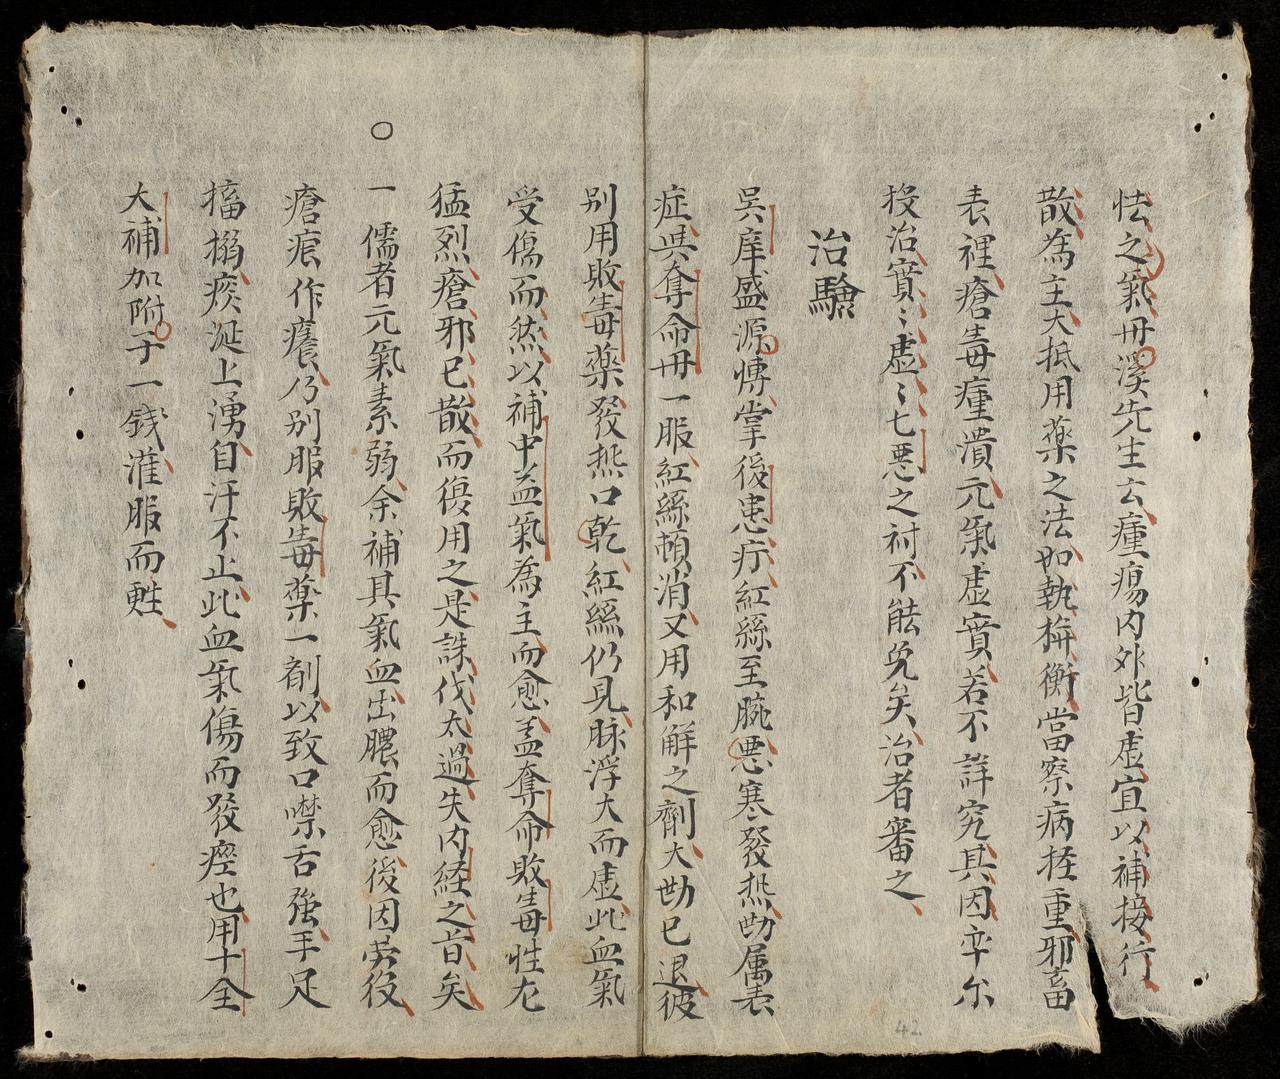 怯之氣丹溪先生云瘇瘍内外皆虚宜以補接行
散為主大抵用藥之法如執権衡當察病挃重邪畜
表裡瘡毒瘇潰元氣虚實若不詳究其因卒尓
投治實〻虚〻七悪之禍不能免矣治者審之
治驗
吳庠盛源慱掌後患疔紅絲至腕悪寒發𤍠势属表
症與奪命丹一服紅絲頓消又用和解之劑大势已退彼
别用敗毒藥發𤍠口乾紅絲仍見脉浮大而虚此血氣
受傷而然以補中益氣為主而愈盖奪命敗毒性尤
猛烈瘡邪已散而復用之是誅伐太過失内経之旨矣
○一儒者元氣素弱余補其氣血出膿而愈後因劳役
瘡痕作癢乃别服敗毒藥一劑以致口噤舌强手足
搐搦痰涎上湧自汗不止此血氣傷而發痙也用十全
大補加附子一錢灌服而甦
42